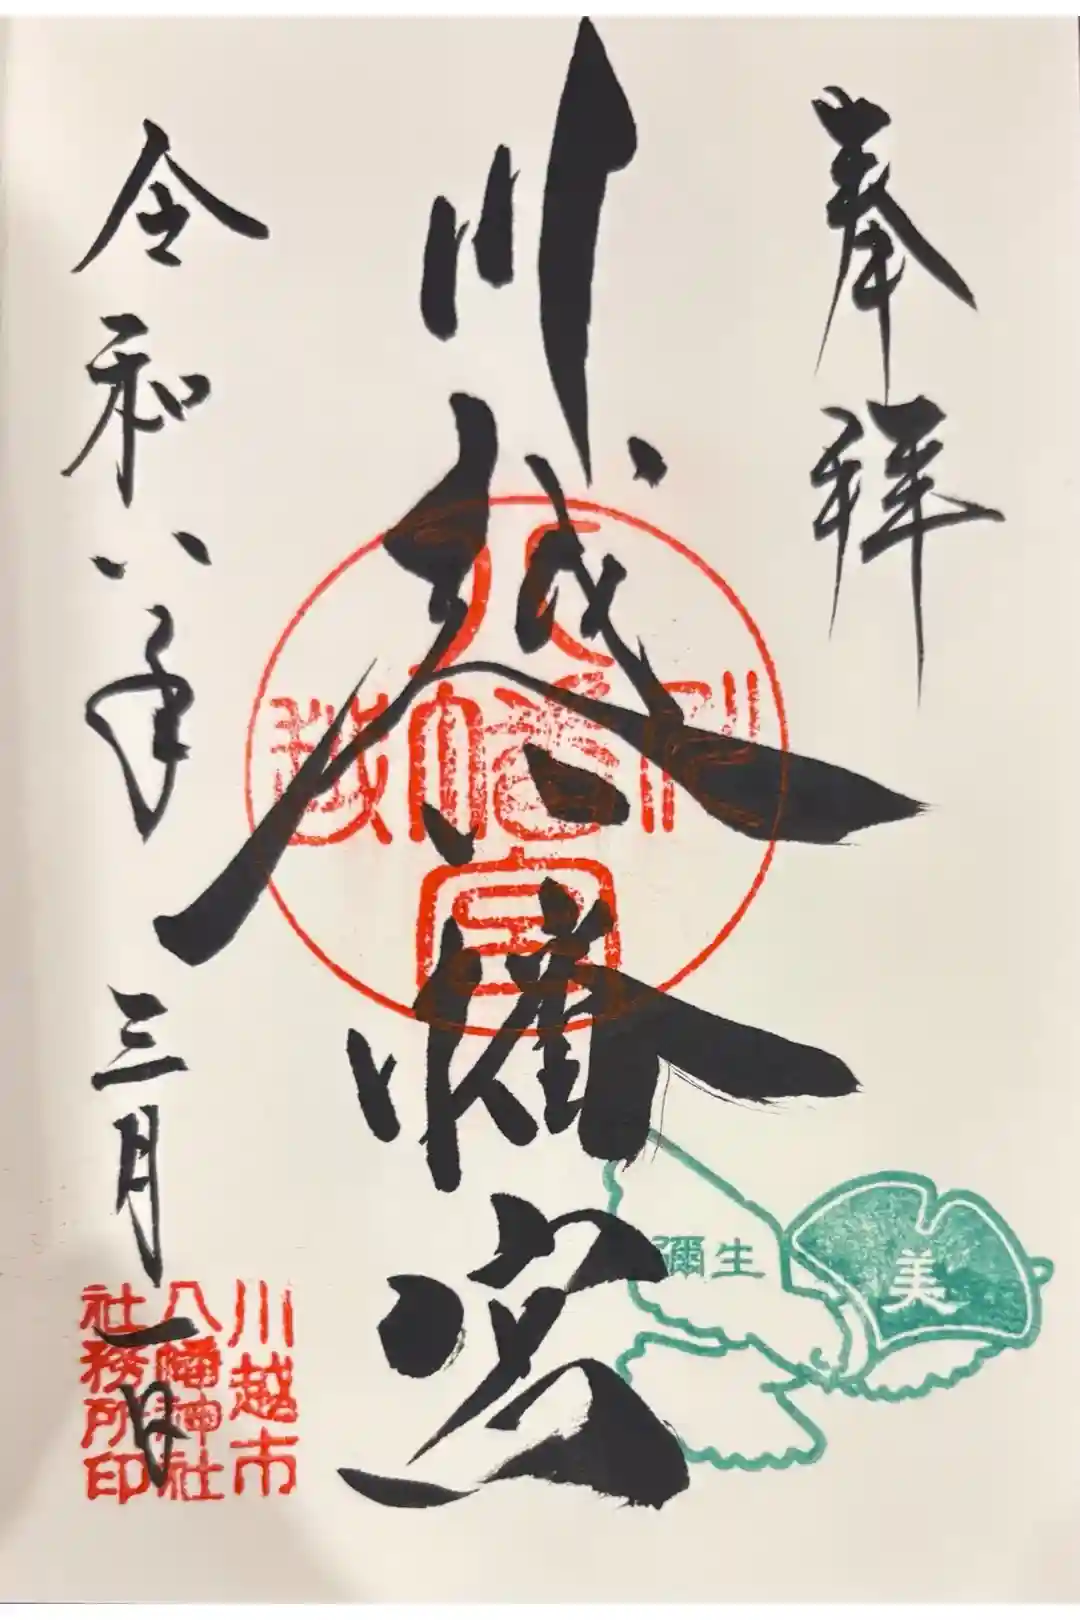 奉拝
川越八幡宮
八幡宮
川越
令和八年三月一日
川越市
八幡神社
社務所印
彌生
美